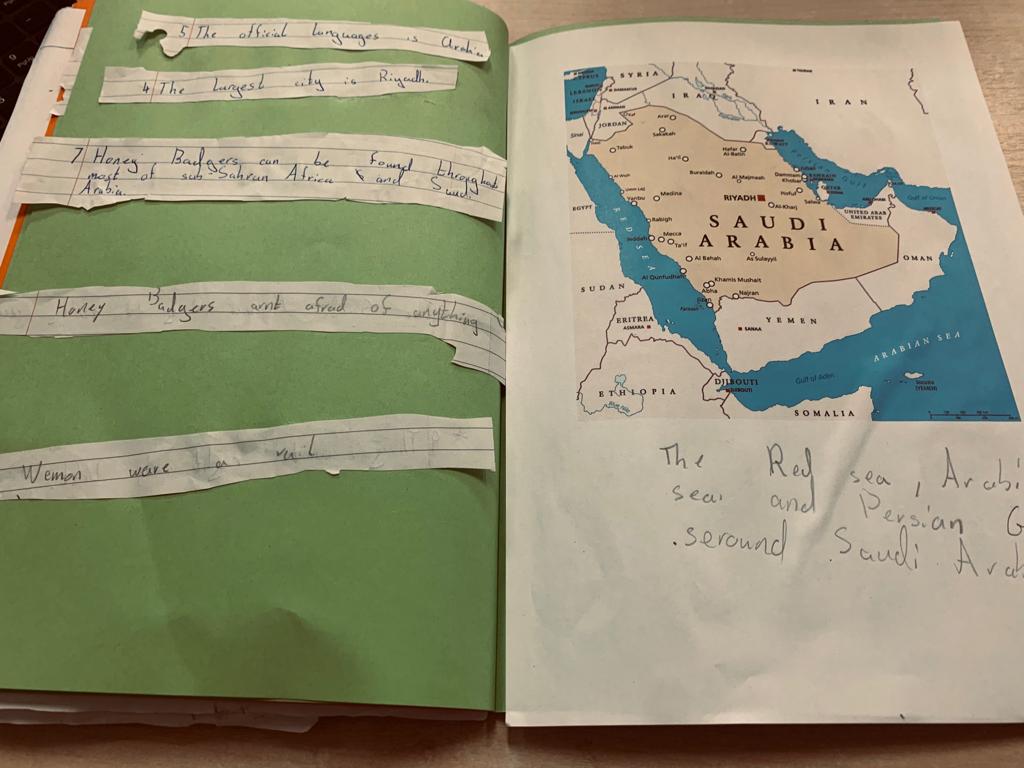 5 The official languages is Arabi
4 The largest city is Riyadh.
7 Honey Badgers can be found throughout
most of sub Sahran Africa and Saudi
Arabia.
Honey Badgers arnt afrad of anything
Wemon were a vail
SYRIA
CYPRUS
LEBANON
DAMASCUS
ISRAEL
AMMAN
JORDAN
IRAQ
IRAN
TEHRAN
Sinai
Arar
Sakakah
Tabuk
Ha'il
Hafar
Al-Batin
KUWAIT
Persian Gulf
Buraidah
Al Majmeah
Dammam
BAHRAIN
Khobar
QATAR
Hofuf
Salwa
Al Wajh
Umm Lajj
Yanbu
Medina
RIYADH
Al-Kharj
ABU DHABI
Gulf of Oman
MUSCAT
EGYPT
RED SEA
Rabigh
UNITED ARAB
EMIRATES
SAUDI
ARABIA
Jeddah
Mecca
Ta'if
Al Bahah
As Sulayyil
OMAN
Al Qunfudhah
SUDAN
Khamis Mushait
Abha
Jizan
Najran
Farasan
ERITREA
ASMARA
SANAA
YEMEN
ARABIAN SEA
DJIBOUTI
DJIBOUTI
Gulf of Aden
Socotra
(YEMEN)
ETHIOPIA
Blue Nile
SOMALIA
The Red sea, Arabi
sea and Persian G
seround Saudi Arab